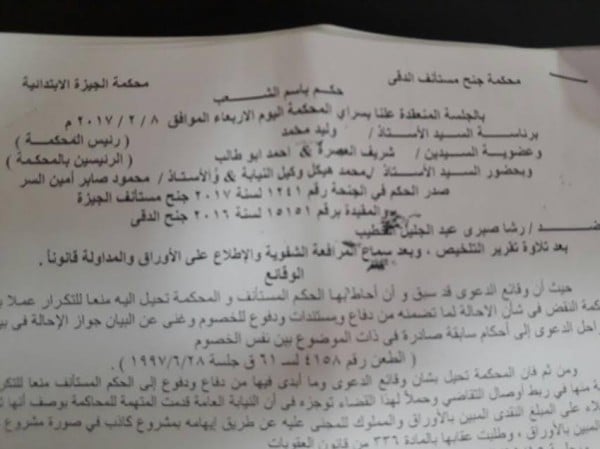 محكمة الجيزة الابتدائية
محكمة جنح مستأنف الدقى
حكم باسم الشعب
بالجلسة المنعقدة علنا بسراي المحكمة اليوم الاربعاء الموافق ٨ / ٢ / ٢٠١٧ م
برئاسة السيد الأستاذ / وليد محمد ( رئيس المحكمة )
وعضوية السيدين / شريف العصرة & احمد ابو طالب ( الرئيسين بالمحكمة )
وبحضور السيد الأستاذ / محمد هيكل وكيل النيابة & والأستاذ / محمود صابر أمين السر
صدر الحكم في الجنحة رقم ١٢٤١ لسنة ٢٠١٧ جنح مستأنف الجيزة
والمقيدة برقم ١٥١٥١ لسنة ٢٠١٦ جنح الدقى
ـد / رشا صبرى عبد الجليل
بعد تلاوة تقرير التلخيص ، وبعد سماع المرافعة الشفوية والإطلاع على الأوراق والمداولة قانوناً .
الوقائع
حيث أن وقائع الدعوى قد سبق و أن أحاط بها الحكم المستأنف و المحكمة تحيل اليه منعا للتكرار عملا
النقض في شأن الاحالة لما تضمنه من دفاع ومستندات ودفوع للخصوم وغنى عن البيان جواز الإحالة في
الدعوى إلى أحكام سابقة صادرة في ذات الموضوع بين نفس الخصوم
( الطعن رقم ٤١٥٨ لسـ ٦١ ق جلسة ١٩٩٧/٦/٢٨ ) .
ومن ثم فان المحكمة تحيل بشان وقائع الدعوى وما أبدى فيها من دفاع ودفوع إلى الحكم المستأنف منعا
منها في ربط أوصال التقاضي وحملاً لهذا القضاء توجزه فى أن النيابة العامة قدمت المتهمة للمحاكمة بوصف أنها
على المبلغ النقدى المبين بالأوراق والمملوك للمجنى عليه عن طريق إيهامه بمشروع كاذب في صورة مشروع
بالأوراق ، وطلبت عقابها بالمادة ٣٣٦ من قانون العقوبات